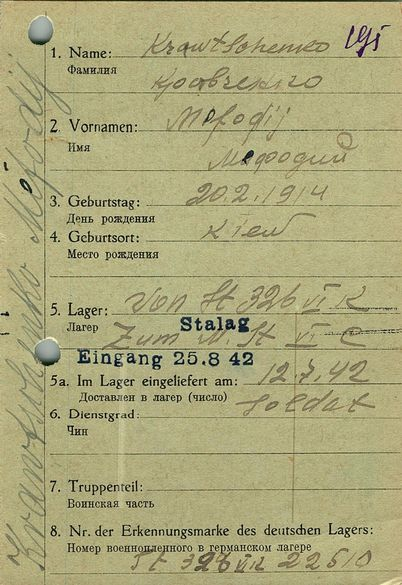 1. Name: Krawtschenko
Фамилия
Кравченко
2. Vornamen: Mefodij
Имя
Мефодий
3. Geburtstag: 20.2.1914
День рождения
4. Geburtsort: Kiew
Место рождения
5. Lager: Von St 326 VI K
Лагер
Zum M. St VI C
Stalag
Eingang 25.8 42
5a. Im Lager eingeliefert am: 12.7.42
Доставлен в лагер (число)
Soldat
6. Dienstgrad:
Чин
7. Truppenteil:
Воинская часть
8. Nr. der Erkennungsmarke des deutschen Lagers:
Номер военнопленного в германском лагере
St 326 VI K 22510
Krawtschenko Mefodij